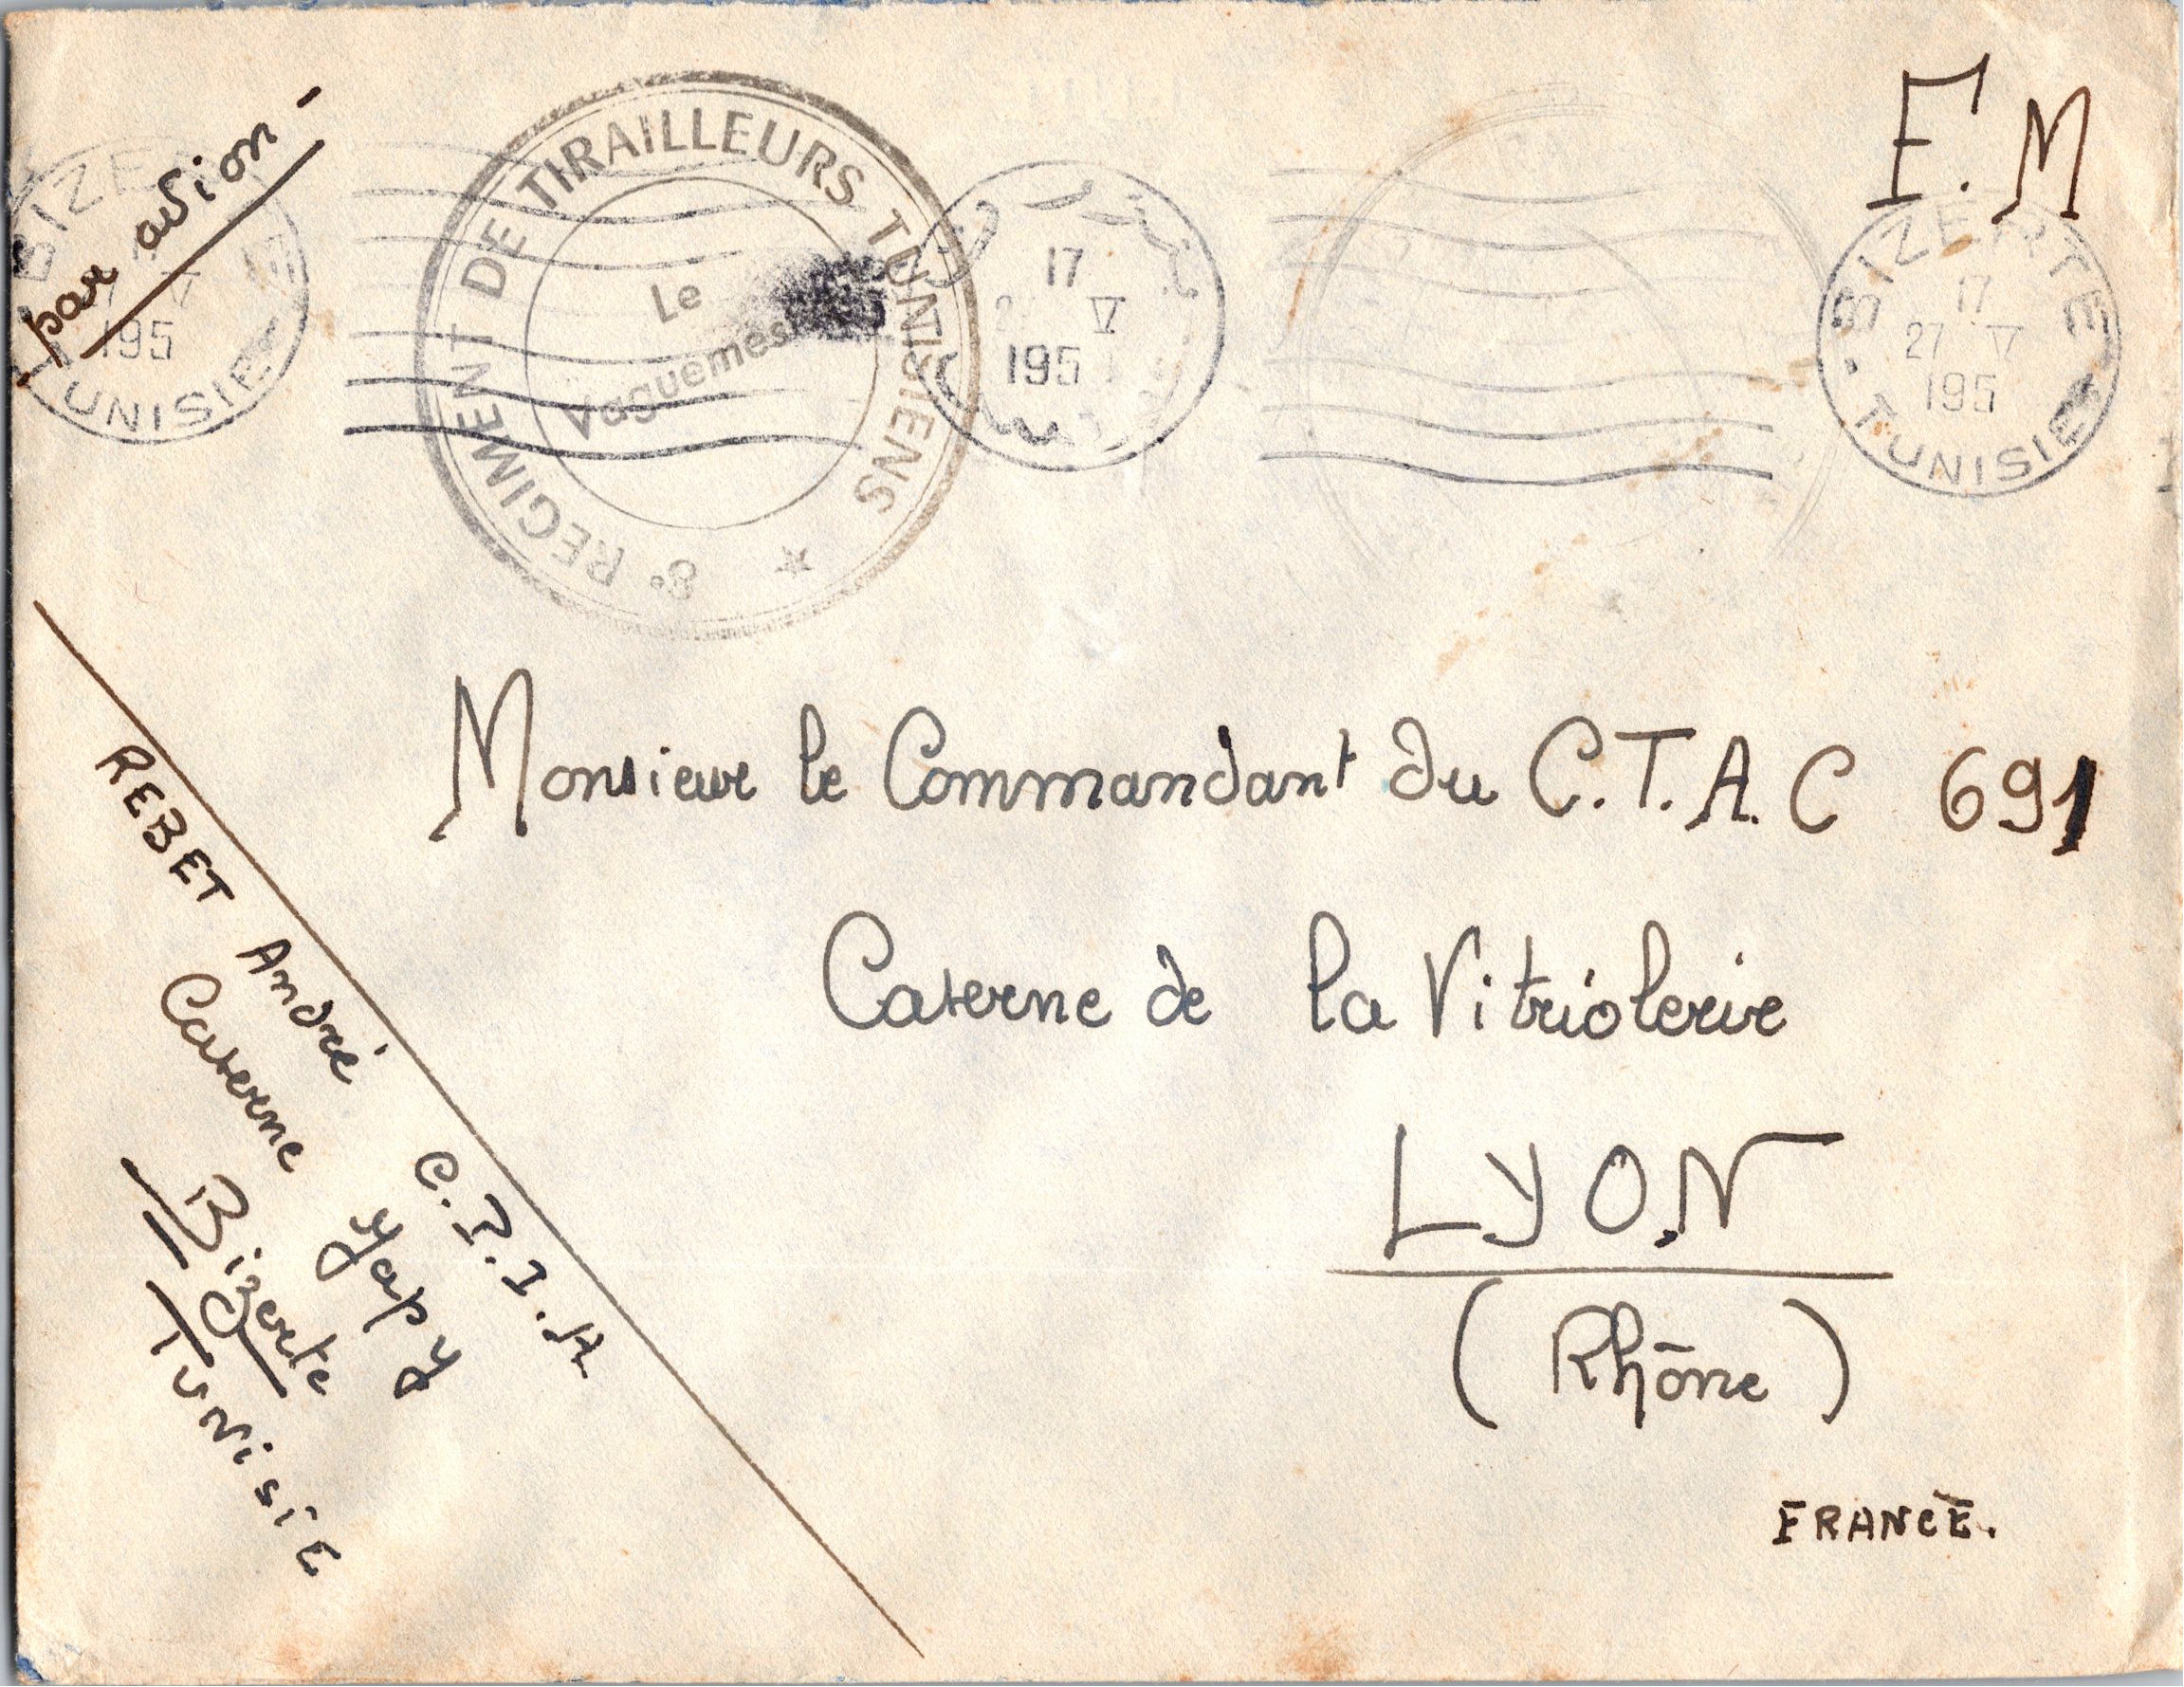 par avion
F.M
BIZERTE
17 V
195
TUNISIE
8e REGIMENT DE TIRAILLEURS TUNISIENS
Le
17
V
195
BIZERTE
17
27 V
195
TUNISIE
Monsieur le Commandant du C.T.A.C 691
Caserne de la Vitriolerie
LYON
(Rhône)
FRANCE.
REBET André C.P.I.A
Caserne Japy
Bizerte
TUNISIE